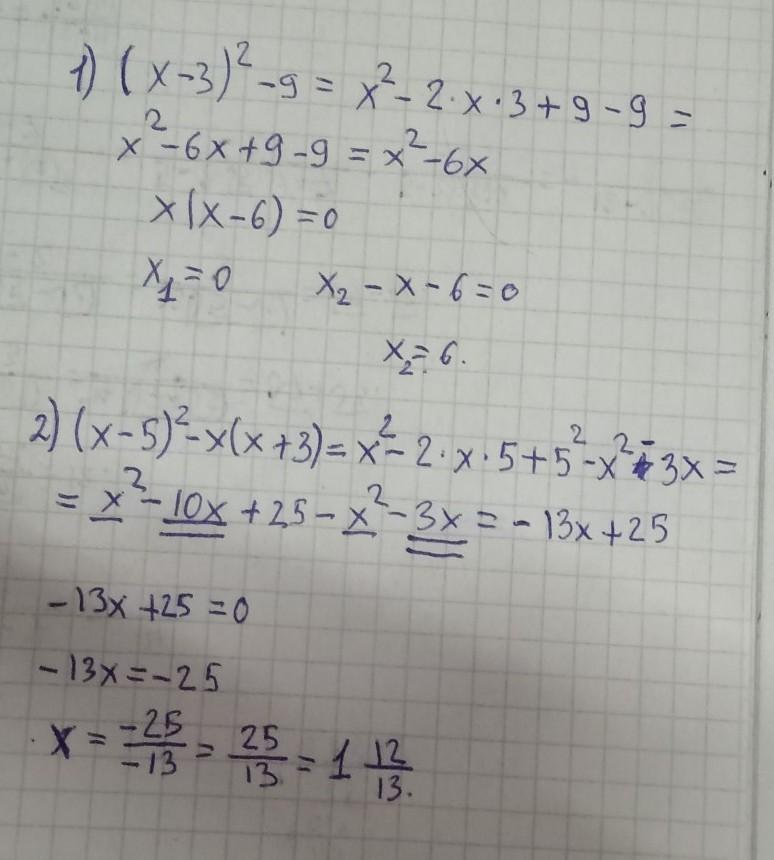 1) (x-3)² -9 = x² - 2·x·3 + 9 - 9 =
x² - 6x + 9 - 9 = x² - 6x
x(x-6) = 0
x₁ = 0 x₂ - x - 6 = 0
x₂ = 6.
2) (x-5)² - x(x+3) = x² - 2·x·5 + 5² - x² - 3x =
= x² - 10x + 25 - x² - 3x = - 13x + 25
-13x + 25 = 0
-13x = -25
x = -25/-13 = 25/13 = 1 12/13.